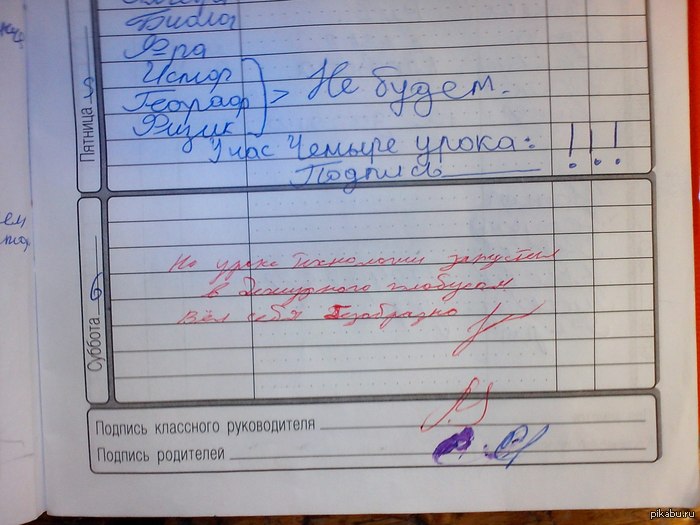 Биолог
Ф-ра
Истор
Географ > Не будем.
Физик
У нас Четыре урока: !!!
Подпись
Пятница 5
На уроке Технологии запустил
в дежурного глобусом
Вёл себя безобразно
Суббота 6
Подпись классного руководителя
Подпись родителей
pikabu.ru